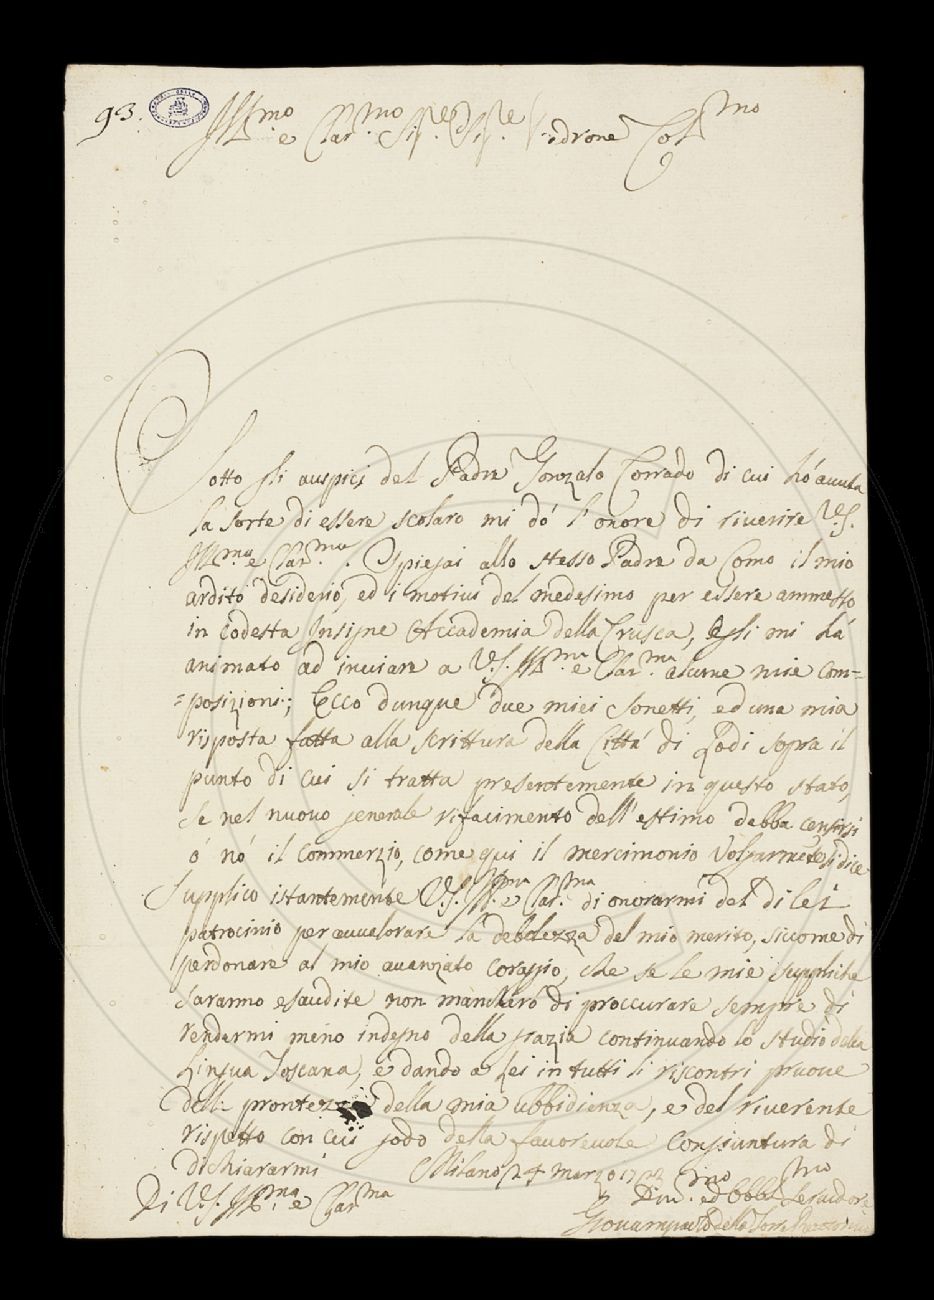 93.
Ill.mo e Clar.mo Sig.re Sig.re Padrone Col.mo
Sotto gli auspicj del Padre Gonzalo Corrado di cui hó avuta
la sorte di essere scolaro mi dó l'onore di riverire V.S.
Ill.ma e Clar.ma. Spiegai allo stesso Padre da Como il mio
ardito desiderio, ed i motivi del medesimo per essere ammesso
in codesta Insigne Accademia della Crusca, Egli mi há
animato ad inviare a V.S. Ill.ma e Clar.ma alcune mie com=
=posizioni; Ecco dunque due miei Sonetti, ed una mia
risposta fatta alla scrittura della Cittá di Lodi sopra il
punto di cui si tratta presentemente in questo stato,
Se nel nuovo generale rifacimento dell'estimo debba censirsi
ó nó il commerzio, come qui il mercimonio Volgarmente si dice
Supplico istantemente V.S. Ill.ma e Clar.ma di onorarmi del di lei
patrocinio per avvalorare la debolezza del mio merito, siccome di
perdonare al mio avanzato coraggio, che se le mie suppliche
saranno esaudite non mancheró di proccurare sempre di
rendermi meno indegno della grazia continuando lo studio della
Lingua Toscana, e dando a Lei in tutti li riscontri pruove
della prontezza della mia ubbidienza, e del riverente
rispetto con cui godo della favorevole congiuntura di
dichiararmi Milano 24 Marzo
Di V.S. Ill.ma e Clar.ma Div.mo ed Obbl.mo Servidore
Giovampaolo della Torre